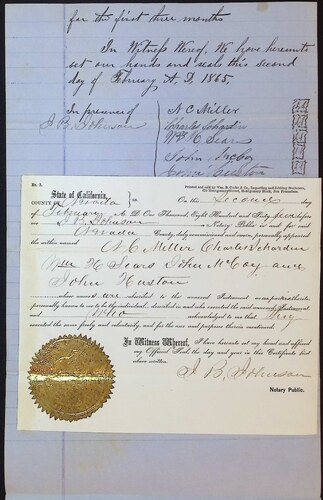 for the first three months
In Witness Wereof, We have hereunto
set our hands and seals this second
day of February A, D, 1865,
In presence of
J B. Johnson
N C. Miller
Charles Schardin
Wm H Sears
John McCoy
John Huston
No. 2.
State of California,
COUNTY OF Nevada
On the Second day
of February A. D. One Thousand Eight Hundred and Sixty five before
me J B Johnson a Notary Public in and for said
Nevada County, duly commissioned and sworn, personally appeared
the within named N. C Miller Charles Schardin
Wm H Sears John McCoy and
John Huston
whose names are subscribed to the annexed Instrument as parties thereto,
personally known to me to be the individuals described in and who executed the said annexed Instrument
and who acknowledged to me that they
executed the same freely and voluntarily, and for the uses and purposes therein mentioned.
In Witness Whereof, I have hereunto set my hand and affixed
my Official Seal the day and year in this Certificate first
above written.
J B. Johnson
Notary Public.